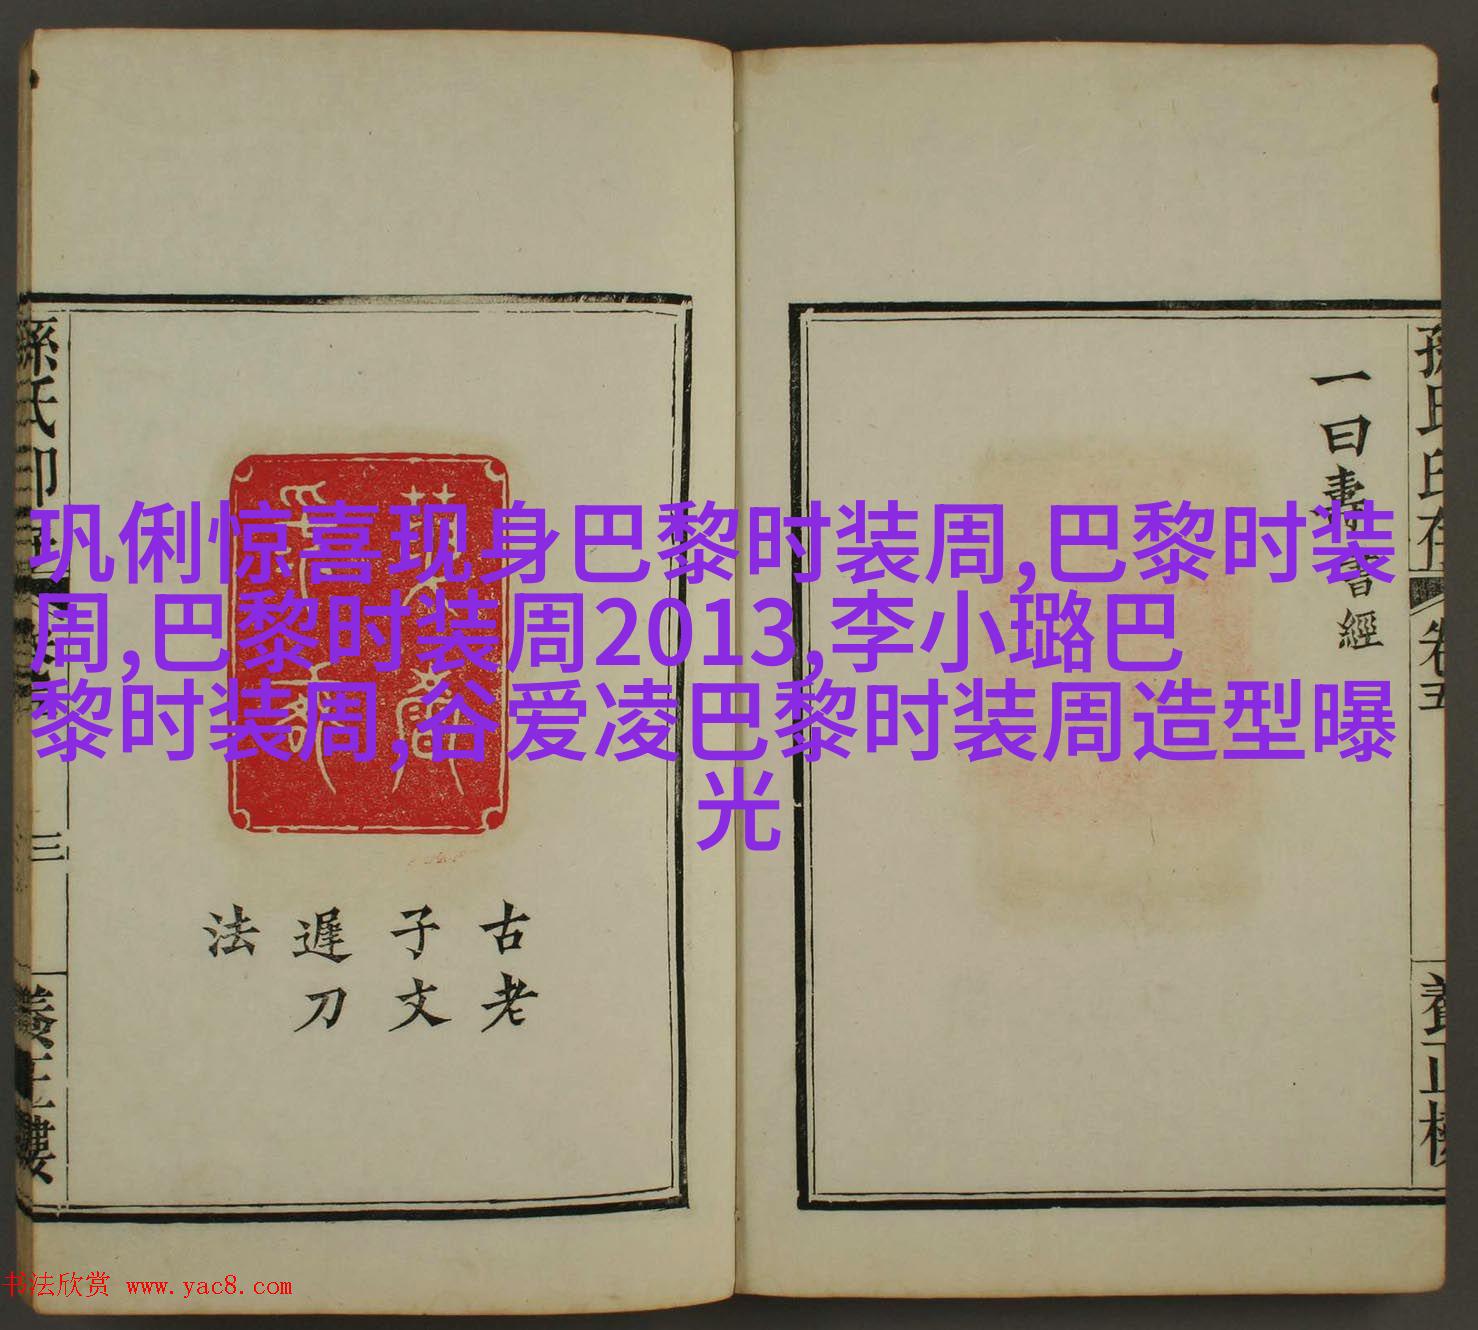 巩俐惊喜现身巴黎时装周,巴黎时装
周,巴黎时装周2013,李小璐巴
黎时装周,谷爱凌巴黎时装周造型曝
光
孫氏印存
卷五
養正樓
一曰壽書經
古老
子文
遲刀
法
孫氏印
三
養正樓
书法欣赏 www.yac8.com